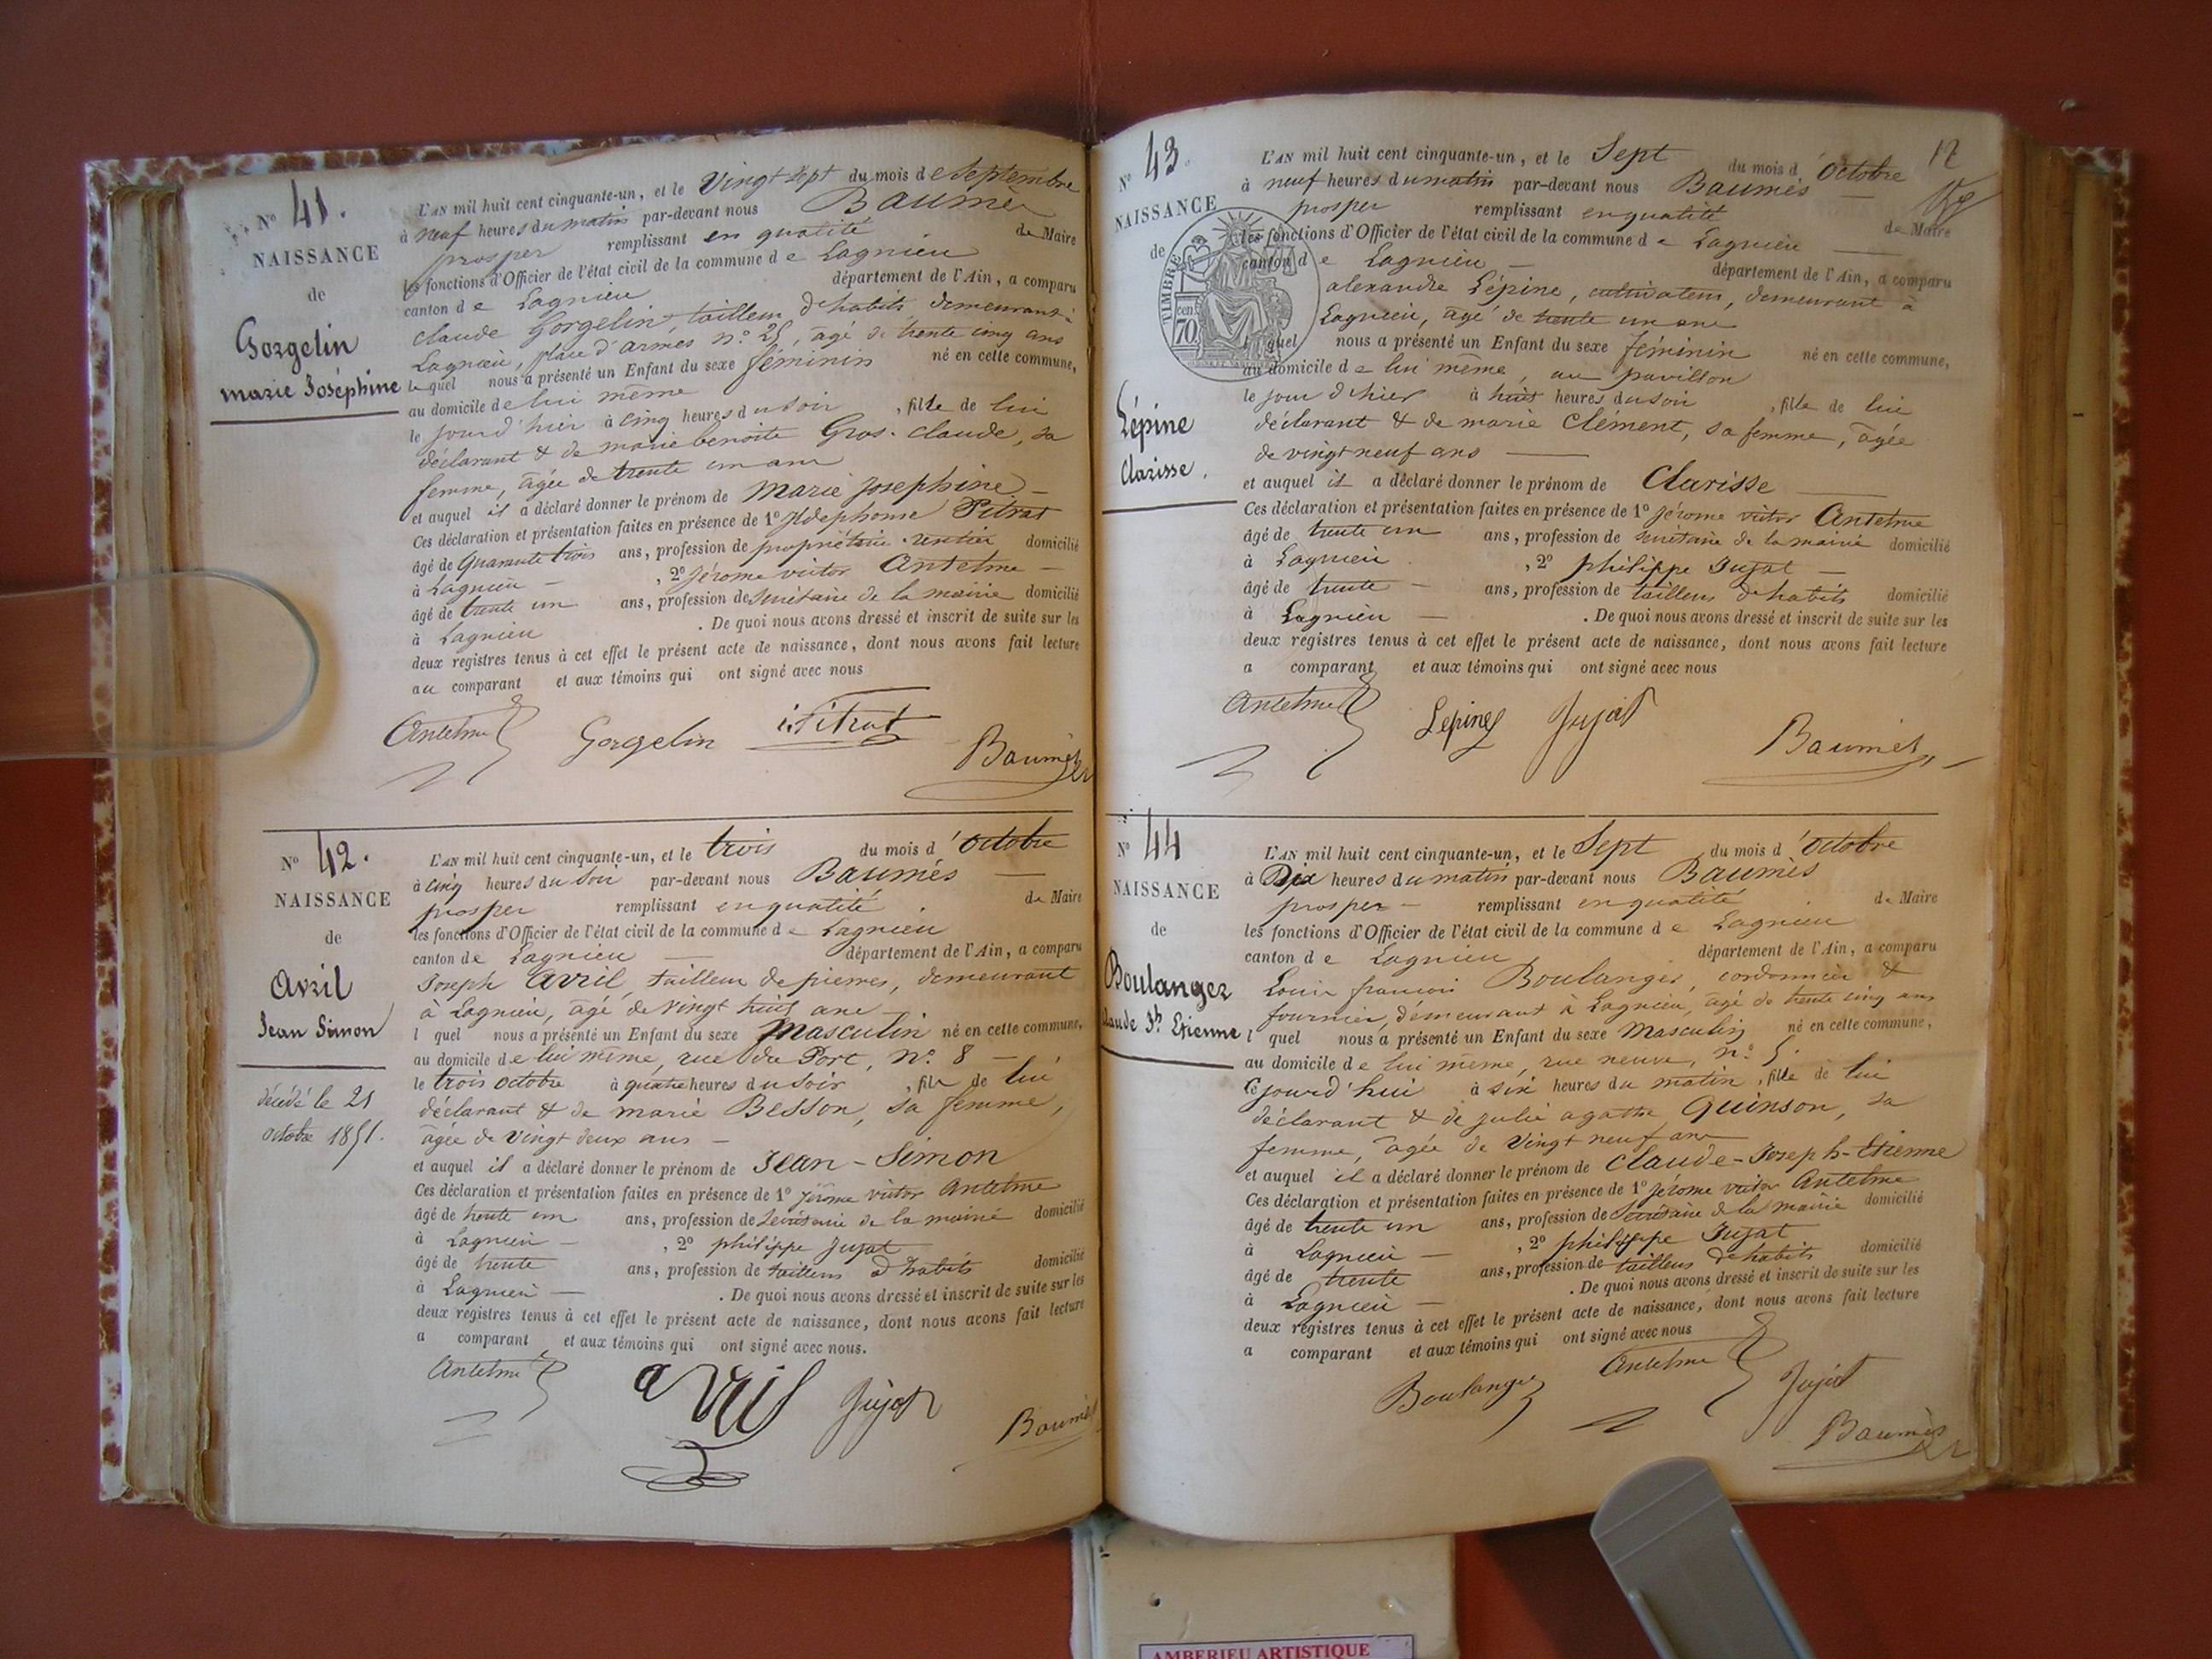 N° 41.
NAISSANCE
de
Gorgelin
marie Joséphine
L'AN mil huit cent cinquante-un, et le Vingt sept du mois de Septembre
à neuf heures du matin par-devant nous Baumès
prosper remplissant en qualité de Maire
les fonctions d'Officier de l'état civil de la commune de Lagnieu
canton de Lagnieu département de l'Ain, a comparu
claude Gorgelin, tailleur d'habits, demeurant à
Lagnieu, place d'armes n° 25, âgé de trente cinq ans
lequel nous a présenté un Enfant du sexe féminin né en cette commune,
au domicile de lui même
le jour d'hier à cinq heures du soir, fille de lui
déclarant & de marie benoite Gros-claude, sa
femme, âgée de trente un ans
et auquel il a déclaré donner le prénom de Marie Josephine
Ces déclaration et présentation faites en présence de 1° Ildephonse Pitrat
âgé de Quarante trois ans, profession de propriétaire-rentier domicilié
à Lagnieu, 2° Jérome victor Antelme
âgé de trente un ans, profession de secrétaire de la mairie domicilié
à Lagnieu. De quoi nous avons dressé et inscrit de suite sur les
deux registres tenus à cet effet le présent acte de naissance, dont nous avons fait lecture
au comparant et aux témoins qui ont signé avec nous
Antelme Gorgelin Pitrat
Baumès
N° 42.
NAISSANCE
de
Avril
Jean Simon
décédé le 21
octobre 1851.
L'AN mil huit cent cinquante-un, et le trois du mois d'octobre
à cinq heures du soir par-devant nous Baumès
prosper remplissant en qualité de Maire
les fonctions d'Officier de l'état civil de la commune de Lagnieu
canton de Lagnieu département de l'Ain, a comparu
Joseph Avril, tailleur de pierres, demeurant
à Lagnieu, âgé de vingt huit ans
l quel nous a présenté un Enfant du sexe Masculin né en cette commune,
au domicile de lui même, rue du Port, n° 8
le trois octobre à quatre heures du soir, fils de lui
déclarant & de marie Besson, sa femme,
âgée de vingt deux ans
et auquel il a déclaré donner le prénom de Jean-Simon
Ces déclaration et présentation faites en présence de 1° Jérome victor Antelme
âgé de trente un ans, profession de secrétaire de la mairie domicilié
à Lagnieu, 2° philippe Jujat
âgé de trente ans, profession de tailleur d'habits domicilié
à Lagnieu. De quoi nous avons dressé et inscrit de suite sur les
deux registres tenus à cet effet le présent acte de naissance, dont nous avons fait lecture
a comparant et aux témoins qui ont signé avec nous.
Antelme avril Jujat
Baumès
17
N° 43.
NAISSANCE
de
TIMBRE
cen
70
Lépine
Clarisse.
L'AN mil huit cent cinquante-un, et le Sept du mois d'Octobre
à neuf heures du matin par-devant nous Baumès
prosper remplissant en qualité de Maire
les fonctions d'Officier de l'état civil de la commune de Lagnieu
canton de Lagnieu département de l'Ain, a comparu
alexandre Lépine, cultivateur, demeurant à
Lagnieu, âgé de trente un ans
quel nous a présenté un Enfant du sexe féminin né en cette commune,
au domicile de lui même, au pavillon
le jour d'hier à huit heures du soir, fille de lui
déclarant & de marie Clément, sa femme, âgée
de vingt neuf ans
et auquel il a déclaré donner le prénom de Clarisse
Ces déclaration et présentation faites en présence de 1° Jérome victor Antelme
âgé de trente un ans, profession de secrétaire de la mairie domicilié
à Lagnieu, 2° philippe Jujat
âgé de trente ans, profession de tailleur d'habits domicilié
à Lagnieu. De quoi nous avons dressé et inscrit de suite sur les
deux registres tenus à cet effet le présent acte de naissance, dont nous avons fait lecture
a comparant et aux témoins qui ont signé avec nous
Antelme Lepine Jujat
Baumès
N° 44
NAISSANCE
de
Boulanger
Claude Jh Etienne
L'AN mil huit cent cinquante-un, et le Sept du mois d'octobre
à Dix heures du matin par-devant nous Baumès
prosper remplissant en qualité de Maire
les fonctions d'Officier de l'état civil de la commune de Lagnieu
canton de Lagnieu département de l'Ain, a comparu
Louis françois Boulanger, cordonnier &
fournier, demeurant à Lagnieu, âgé de trente cinq ans
l quel nous a présenté un Enfant du sexe Masculin né en cette commune,
au domicile de lui même, rue neuve, n° 5.
ce jourd'hui à six heures du matin, fils de lui
déclarant & de julie agathe Quinson, sa
femme, âgée de Vingt neuf ans
et auquel il a déclaré donner le prénom de Claude-Joseph-Etienne
Ces déclaration et présentation faites en présence de 1° Jérome victor Antelme
âgé de trente un ans, profession de Secrétaire de la mairie domicilié
à Lagnieu, 2° philippe Jujat
âgé de trente ans, profession de tailleur d'habits domicilié
à Lagnieu. De quoi nous avons dressé et inscrit de suite sur les
deux registres tenus à cet effet le présent acte de naissance, dont nous avons fait lecture
a comparant et aux témoins qui ont signé avec nous
Boulanger Antelme Jujat
Baumès
AMBERIEU ARTISTIQUE